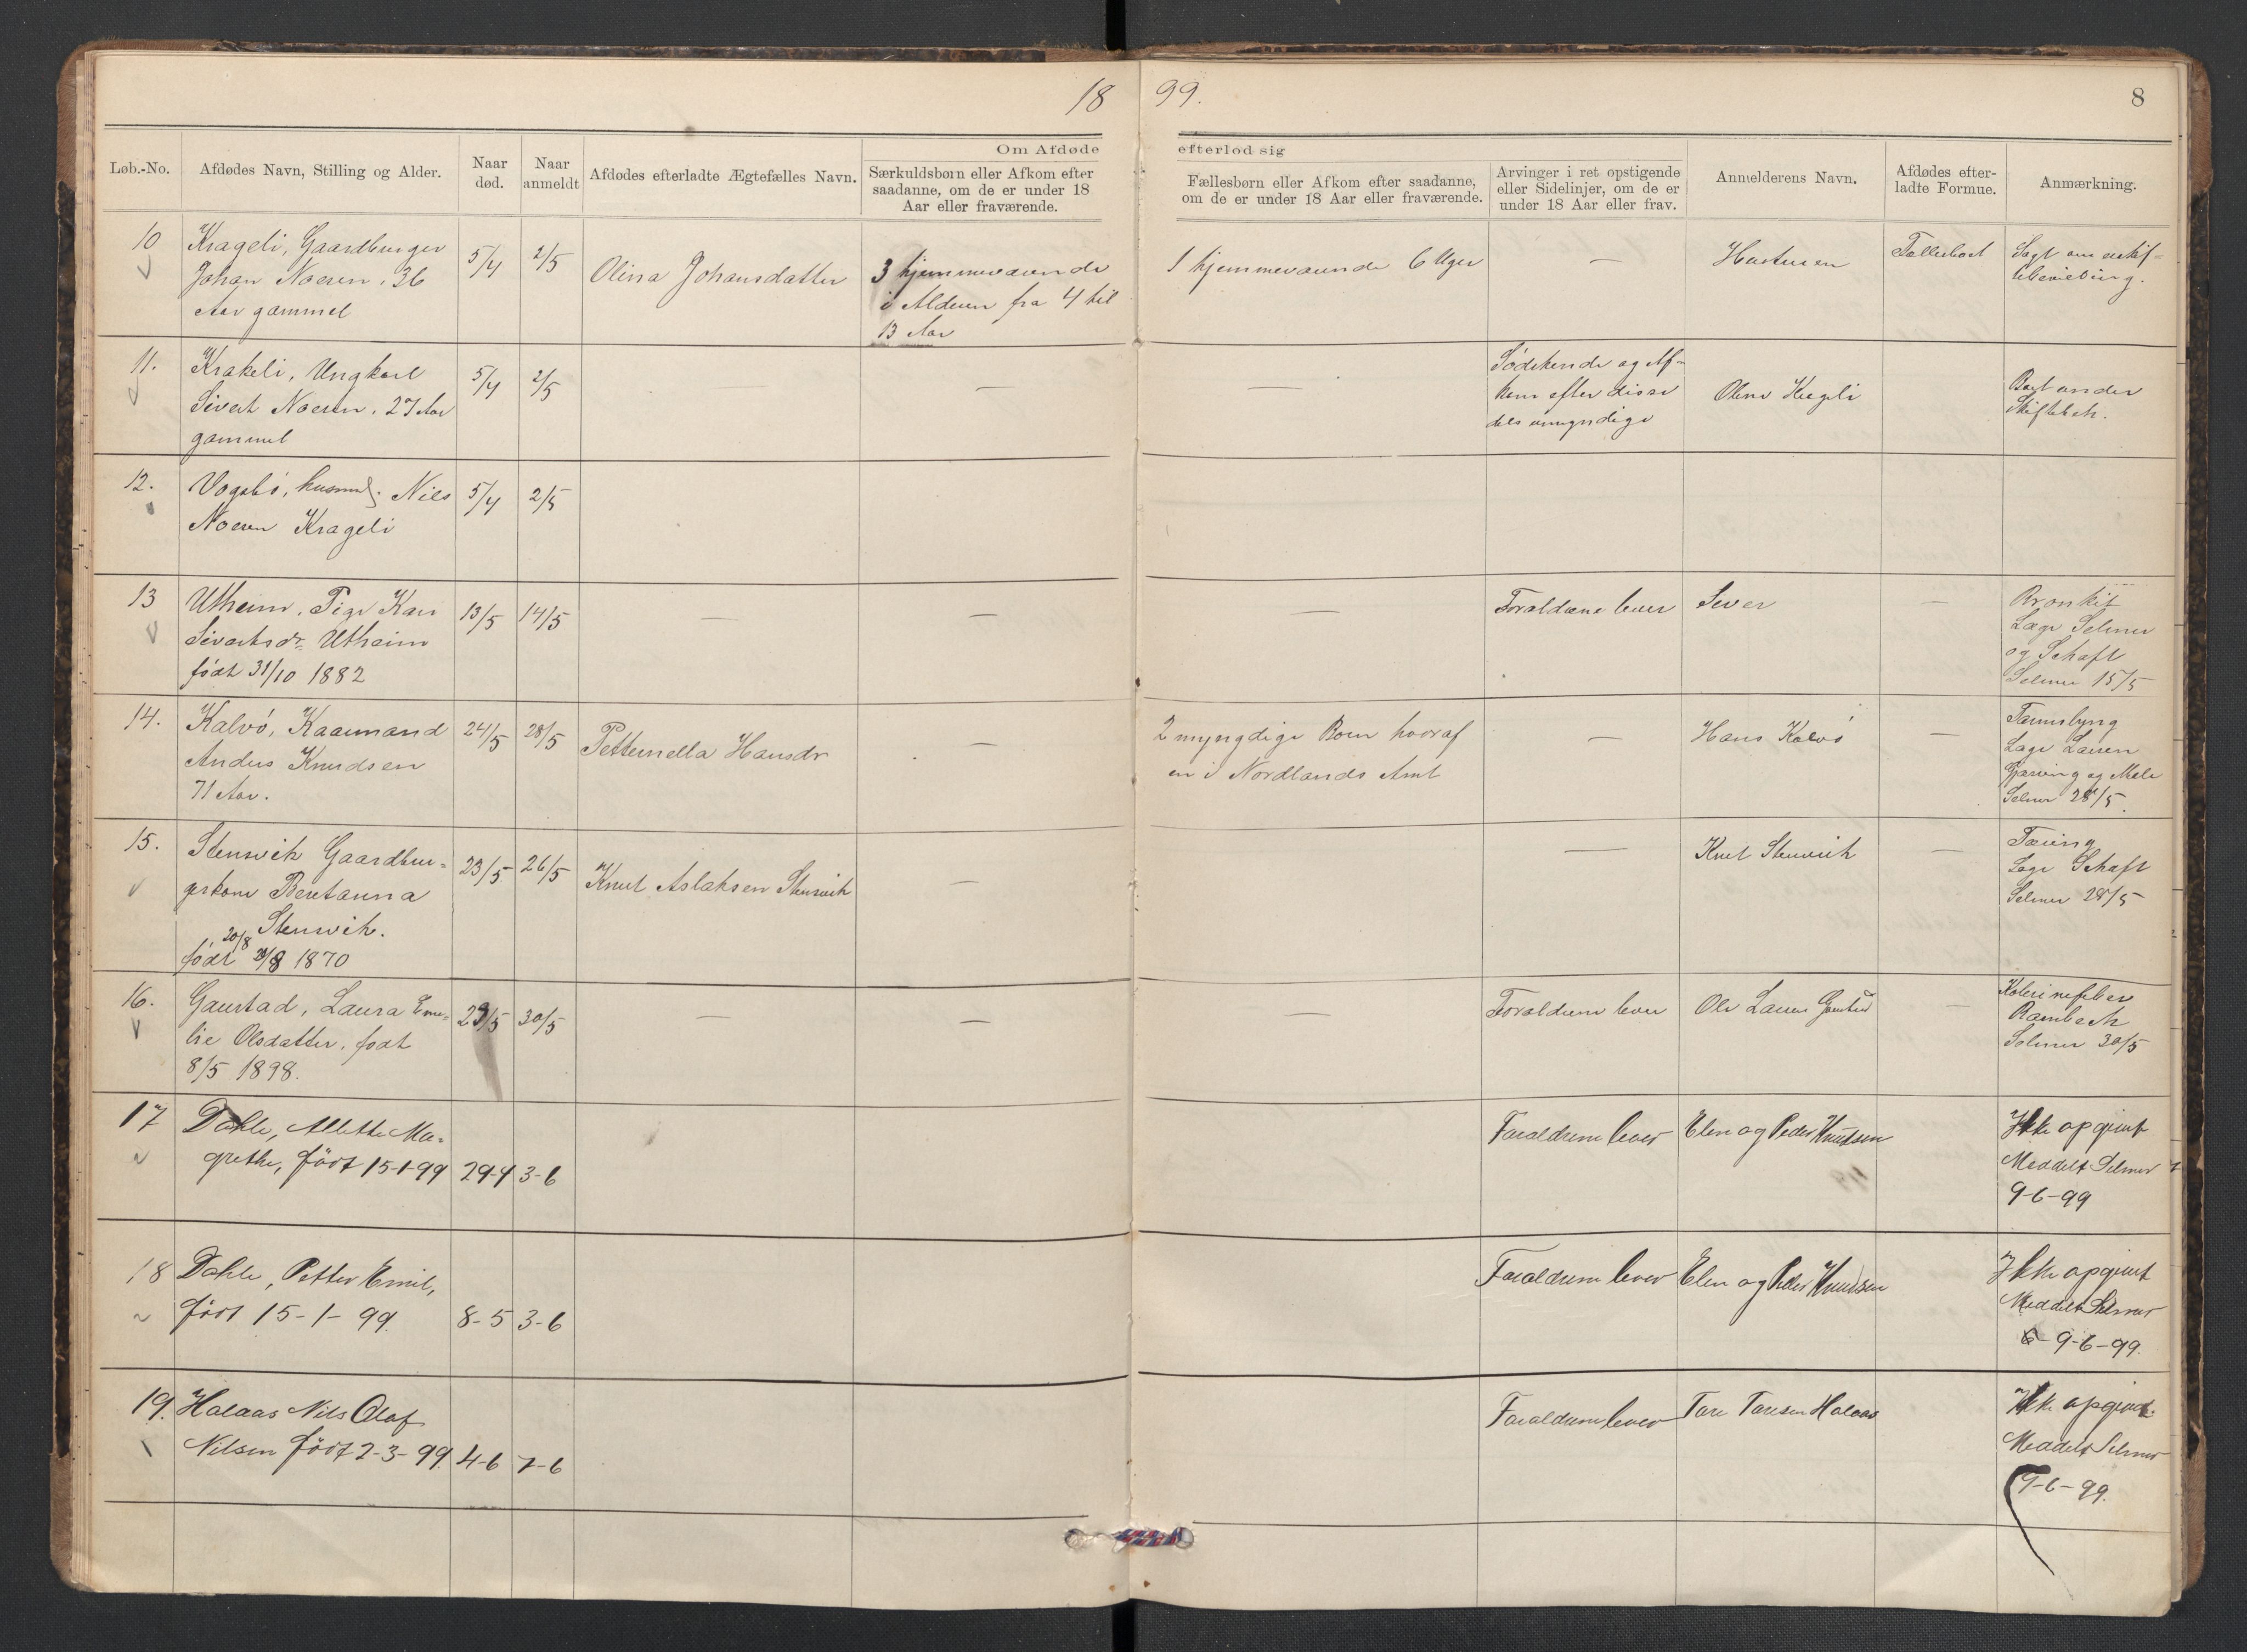 18 99.
8
Om Afdøde efterlod sig
Løb.-No.
Afdødes Navn, Stilling og Alder.
Naar
død.
Naar
anmeldt
Afdødes efterladte Ægtefælles Navn.
Særkuldsbørn eller Afkom efter
saadanne, om de er under 18
Aar eller fraværende.
Fællesbørn eller Afkom efter saadanne,
om de er under 18 Aar eller fraværende.
Arvinger i ret opstigende
eller Sidelinjer, om de er
under 18 Aar eller frav.
Anmelderens Navn.
Afdødes efter-
ladte Formue.
Anmærkning.
10
Krageli, Gaardbruger
Johan Noesen, 36
Aar gammel
5/4
2/5
Olina Johansdatter
3 hjemmeværende
i Alderen fra 4 til
13 Aar
1 hjemmeværende 6 Uger
—
Hustruen
Sagt om
11.
Krakeli, Ungkarl
Sivert Noesen, 27 Aar
gammel
5/4
2/5
—
—
—
Södskende og Af-
kom efter disse
dels umyndige
Oline Krageli
Boet under
Skiftebeh.
12.
Vogsbö, husmd. Nils
Noesen Krageli
5/4
2/5
13
Utheim, Pige Kari
Sivertsdr. Utheim
født 31/10 1882
13/5
14/5
—
—
—
Forældrene lever
—
Bronkit
Læge Selmer
og Schaft
Selmer 15/5
14.
Kalvö, Kaarmand
Anders Knudsen
71 Aar.
24/5
28/5
Petternella Hansdr
—
2 myngdige Börn hvoraf
en i Nordlands Amt
—
Hans Kalvö
—
Læge
Selmer 28/5.
15.
Stenvik Gaardbru-
gerkone Berntanna
Stenvik.
20/8
født 1870
23/5
26/5
Knut Aslaksen Stenvik
—
—
Knut Stenvik
—
Tæring
Læge Schaft
Selmer 28/5
16.
Gaustad, Laura Eme-
lie Olsdatter, født
8/5 1898.
29/5
30/5
—
—
—
Forældrene lever
Ole Gaustad
—
Rambech
Selmer 30/5
17
Dahle, Allette Ma-
grethe, født 15-1-99
29-4
3-6
Forældrene lever
Elen og Peder Knutsen
Ikke opgivet
Meddelt Selmer
9-6-99
18
Dahle, Petter Emil,
født 15-1-99.
8-5
3-6
Forældrene lever
Elen og Peder Knutsen
Ikke opgivet
Meddelt Selmer
9-6-99.
19.
Halaas Nils Olaf
Nilsen født 2-3-99.
4-6
7-6
Forældrene lever
Tore Toresen Halaas
Ikke opgivet.
Meddelt Selmer
9-6-99.